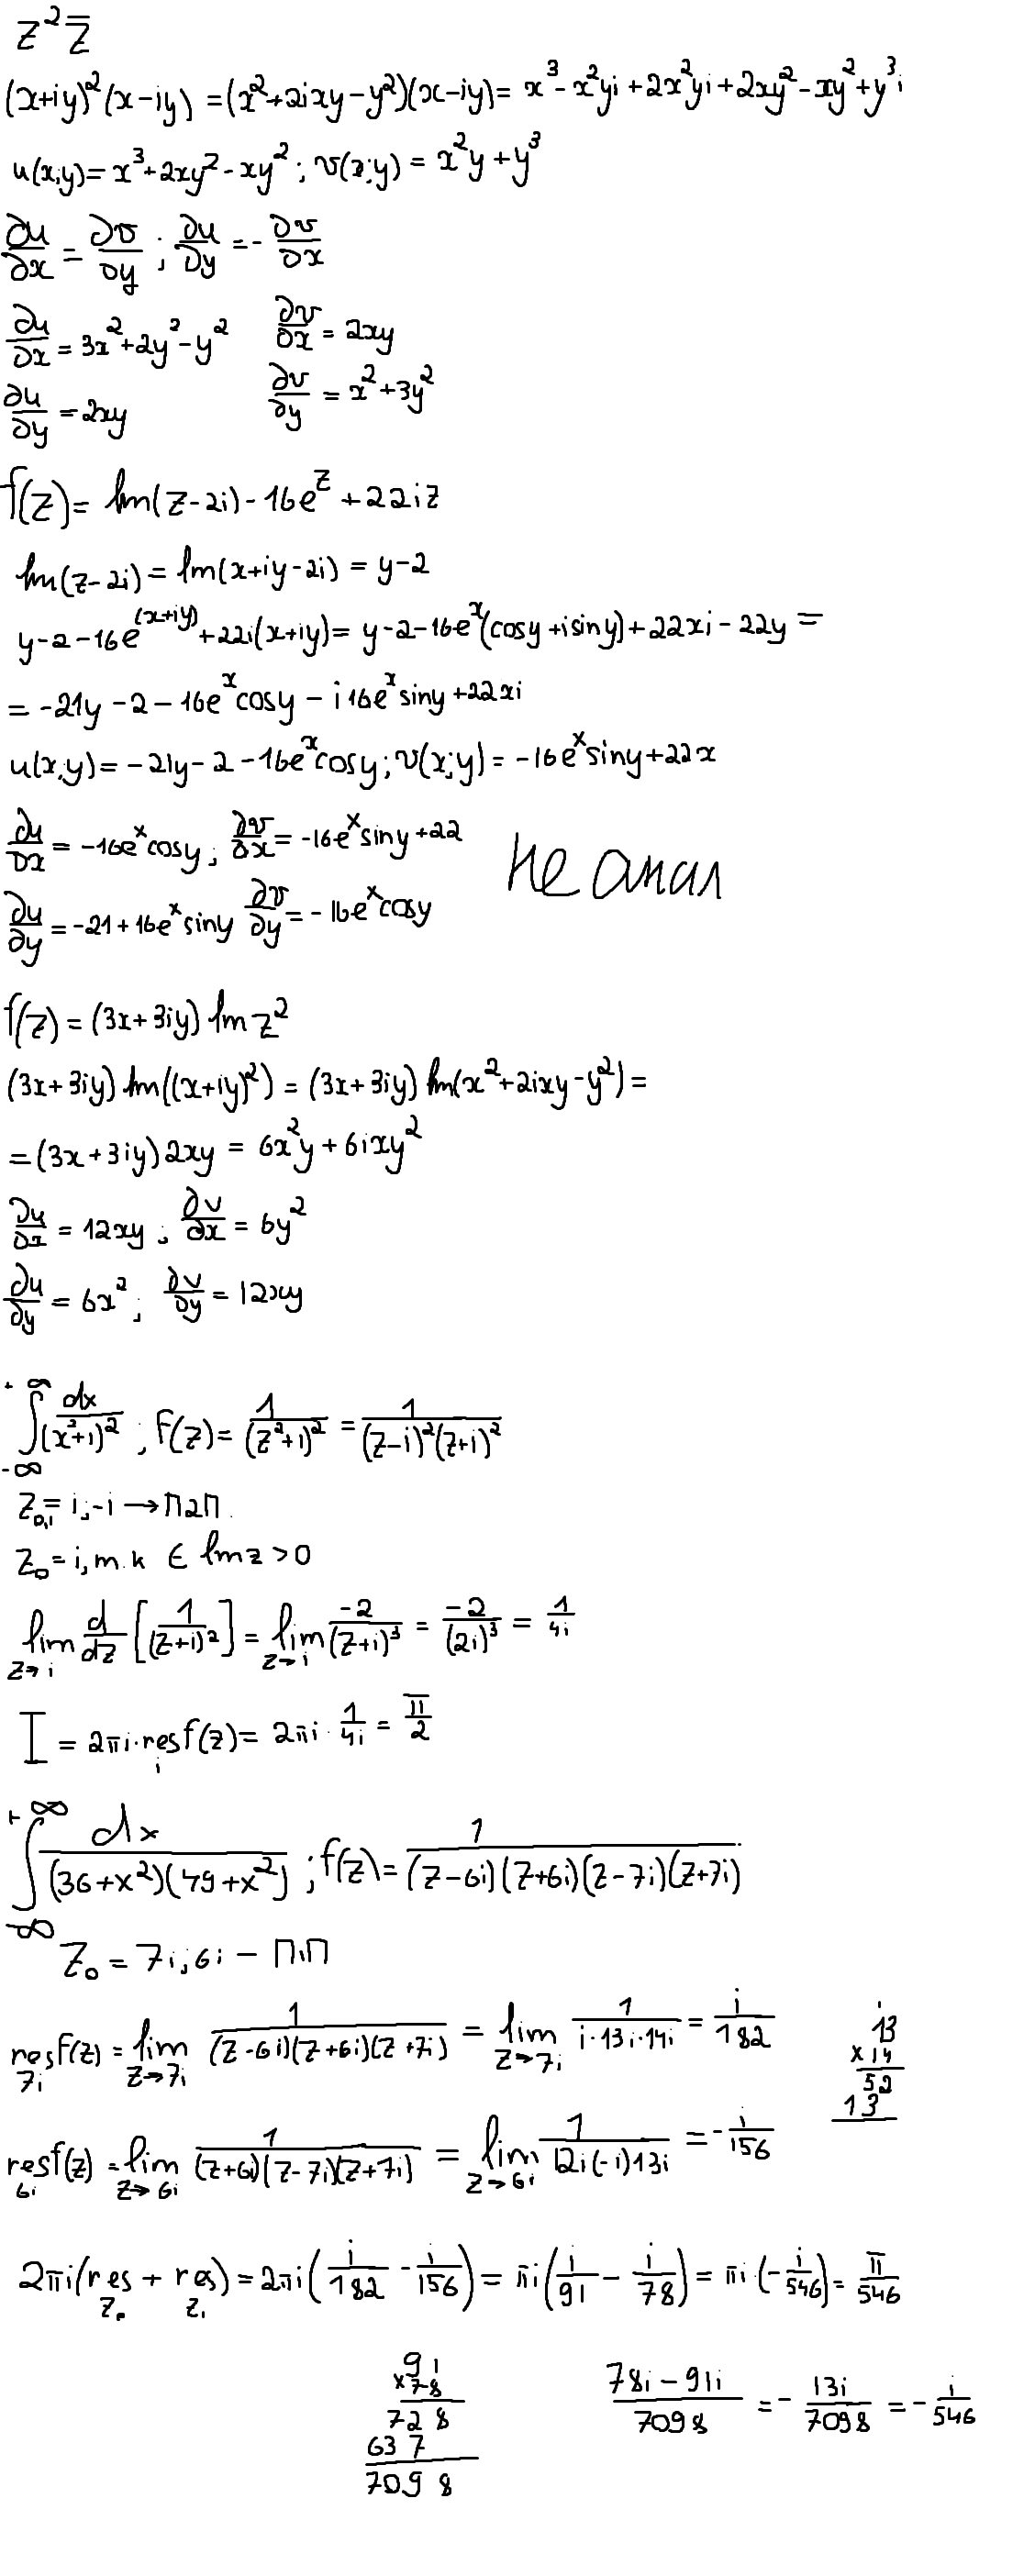 z²z̄
(x+iy)²(x-iy) = (x²+2ixy-y²)(x-iy) = x³-x²yi+2x²yi+2xy²-xy²+y³i
u(x;y) = x³+2xy²-xy²; v(x;y) = x²y+y³
∂u/∂x = ∂v/∂y; ∂u/∂y = -∂v/∂x
∂u/∂x = 3x²+2y²-y² ∂v/∂x = 2xy
∂u/∂y = 2xy ∂v/∂y = x²+3y²
f(z) = Im(z-2i)-16e^z+22iz
Im(z-2i) = Im(x+iy-2i) = y-2
y-2-16e^(x+iy)+22i(x+iy) = y-2-16e^x(cosy+isiny)+22xi-22y =
= -21y-2-16e^x cosy-i16e^x siny+22xi
u(x;y) = -21y-2-16e^x cosy; v(x;y) = -16e^x siny+22x
∂u/∂x = -16e^x cosy; ∂v/∂x = -16e^x siny+22
не анал
∂u/∂y = -21+16e^x siny ∂v/∂y = -16e^x cosy
f(z) = (3x+3iy) Im z²
(3x+3iy) Im((x+iy)²) = (3x+3iy) Im(x²+2ixy-y²) =
= (3x+3iy)2xy = 6x²y+6ixy²
∂u/∂x = 12xy; ∂v/∂x = 6y²
∂u/∂y = 6x²; ∂v/∂y = 12xy
∫_{-∞}^{+∞} dx/(x²+1)²; f(z) = 1/(z²+1)² = 1/((z-i)²(z+i)²)
z₀,₁ = i;-i → п2п.
z₀ = i, т.к ∈ Im z > 0
lim_{z→i} d/dz [1/(z+i)²] = lim_{z→i} -2/(z+i)³ = -2/(2i)³ = 1/4i
I = 2πi·res_i f(z) = 2πi·1/4i = π/2
∫_{-∞}^{+∞} dx/((36+x²)(49+x²)); f(z) = 1/((z-6i)(z+6i)(z-7i)(z+7i))
z₀ = 7i;6i - п1п
res_{7i} f(z) = lim_{z→7i} 1/((z-6i)(z+6i)(z+7i)) = lim_{z→7i} 1/(i·13i·14i) = i/182
13
×14
52
13
res_{6i} f(z) = lim_{z→6i} 1/((z+6i)(z-7i)(z+7i)) = lim_{z→6i} 1/(12i(-i)13i) = -i/156
2πi(res_{z₀} + res_{z₁}) = 2πi(i/182 - i/156) = πi(i/91 - i/78) = πi·(-i/546) = π/546
91
×78
728
637
7098
(78i-91i)/7098 = -13i/7098 = -i/546